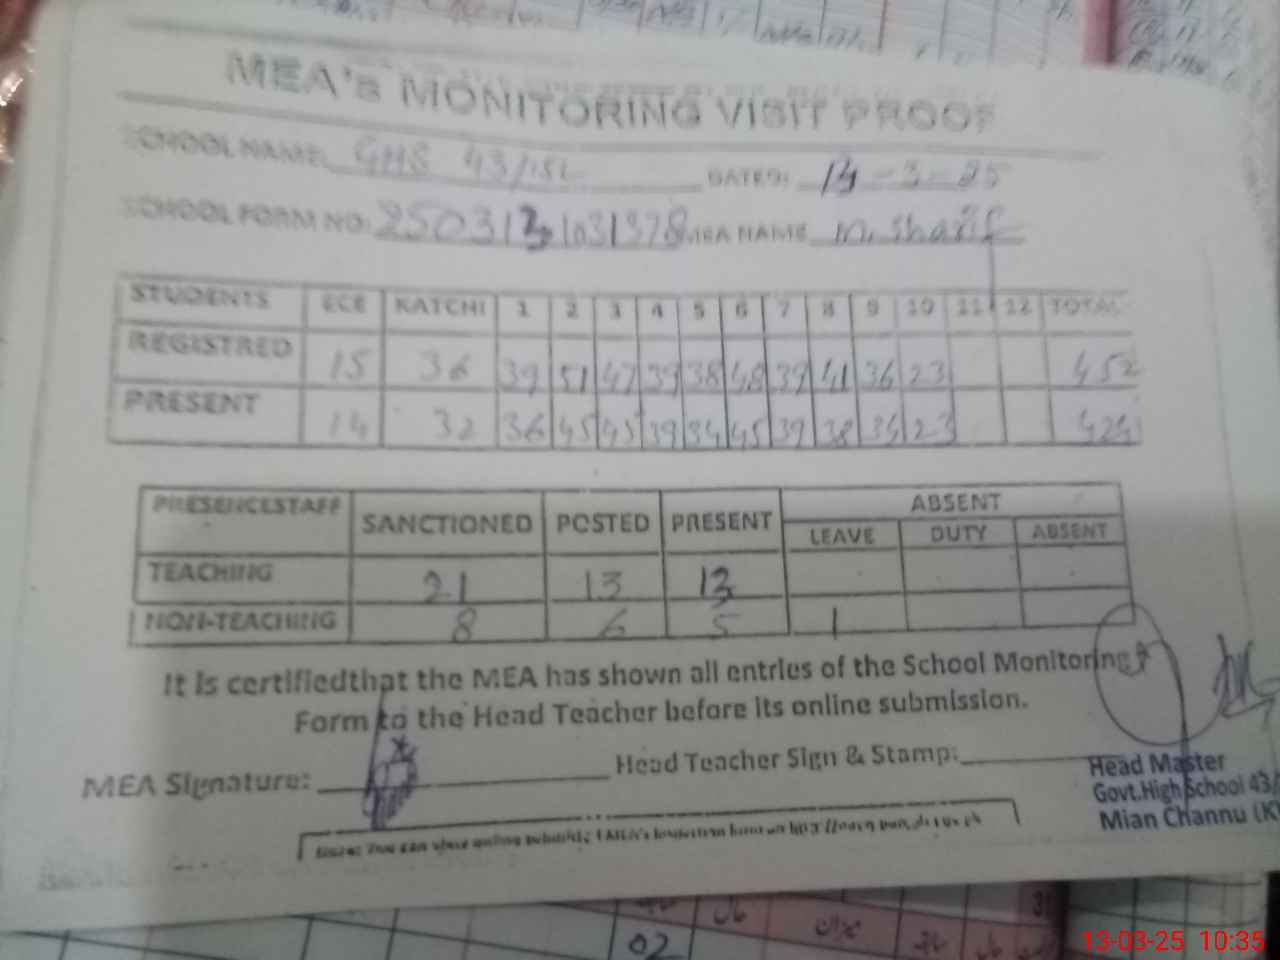 MEA's MONITORING VISIT PROOF
SCHOOL NAME: GHS 43/15L DATED: 13-3-25
SCHOOL FORM NO: 250313 1031378 MEA NAME M. Sharif
STUDENTS ECE KATCHI 1 2 3 4 5 6 7 8 9 10 11 12 TOTAL
REGISTRED 15 36 39 51 47 39 38 48 39 41 36 23 452
PRESENT 14 32 36 45 45 39 34 45 39 38 34 23 424
PRESENCESTAFF SANCTIONED POSTED PRESENT ABSENT
LEAVE DUTY ABSENT
TEACHING 21 13 13
NON-TEACHING 8 6 5 1
It is certifiedthat the MEA has shown all entries of the School Monitoring
Form to the Head Teacher before its online submission.
MEA Signature: Head Teacher Sign & Stamp:
Head Master
Govt.High School 43/
Mian Channu (K
02
13-03-25 10:35